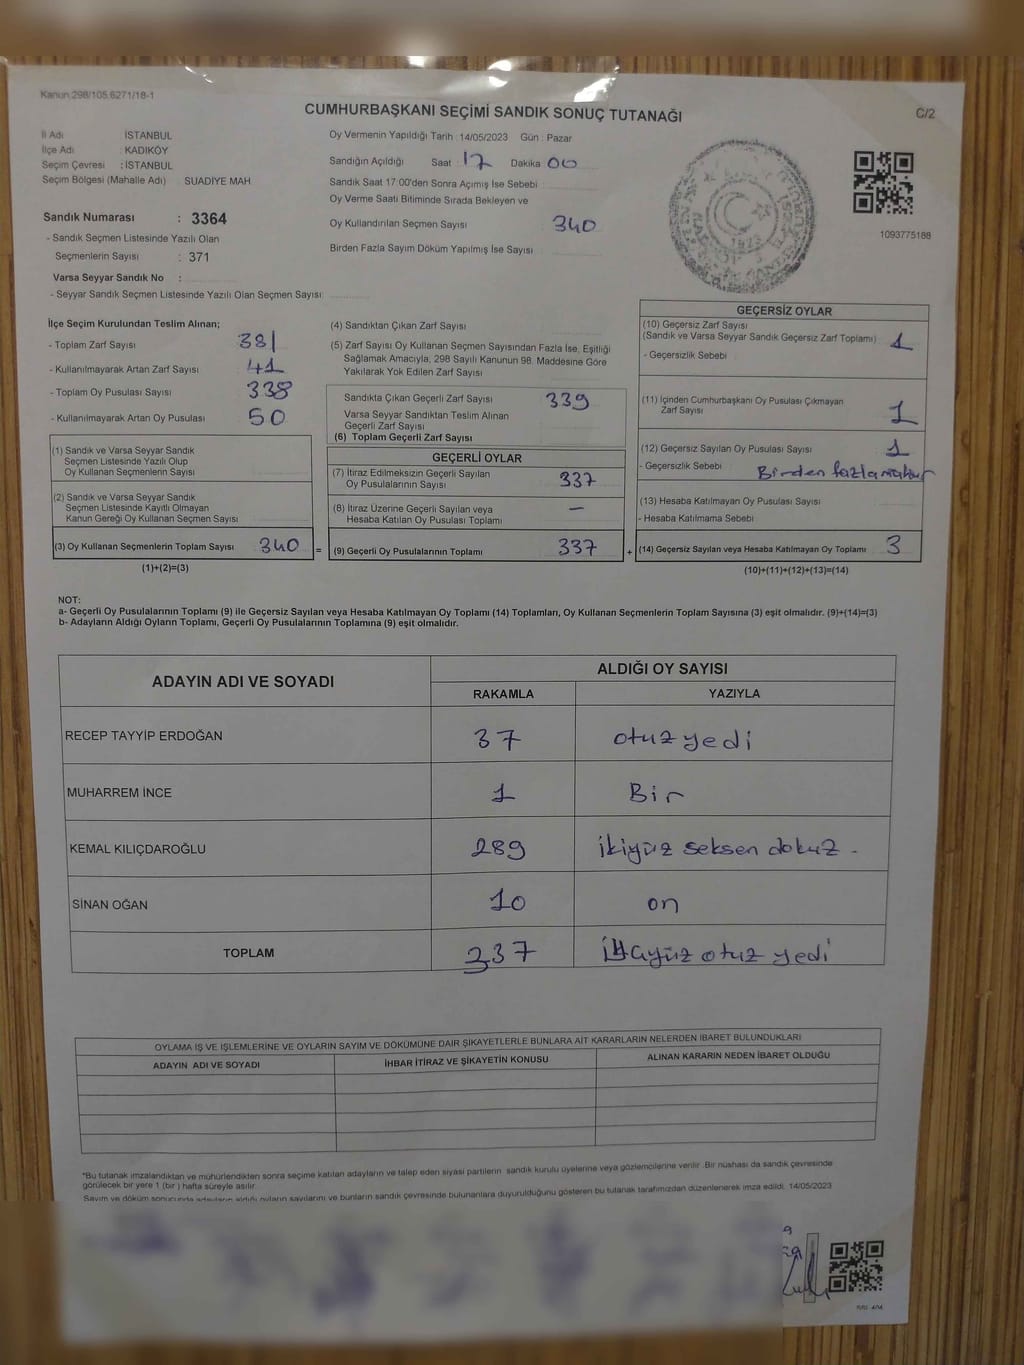 Kanun:298/105,6271/18-1
CUMHURBAŞKANI SEÇİMİ SANDIK SONUÇ TUTANAĞI
C/2
İl Adı : İSTANBUL
İlçe Adı : KADIKÖY
Seçim Çevresi : İSTANBUL
Seçim Bölgesi (Mahalle Adı) : SUADİYE MAH
Sandık Numarası : 3364
- Sandık Seçmen Listesinde Yazılı Olan
Seçmenlerin Sayısı : 371
Varsa Seyyar Sandık No :
- Seyyar Sandık Seçmen Listesinde Yazılı Olan Seçmen Sayısı:
Oy Vermenin Yapıldığı Tarih :14/05/2023 Gün : Pazar
Sandığın Açıldığı Saat : 17 Dakika 00
Sandık Saat 17:00'den Sonra Açımış İse Sebebi
Oy Verme Saati Bitiminde Sırada Bekleyen ve
Oy Kullandırılan Seçmen Sayısı 340
Birden Fazla Sayım Döküm Yapılmış İse Sayısı
1923
1093775188
İlçe Seçim Kurulundan Teslim Alınan;
- Toplam Zarf Sayısı 381
- Kullanılmayarak Artan Zarf Sayısı 41
- Toplam Oy Pusulası Sayısı 338
- Kullanılmayarak Artan Oy Pusulası 50
(1) Sandık ve Varsa Seyyar Sandık
Seçmen Listesinde Yazılı Olup
Oy Kullanan Seçmenlerin Sayısı
(2) Sandık ve Varsa Seyyar Sandık
Seçmen Listesinde Kayıtlı Olmayan
Kanun Gereği Oy Kullanan Seçmen Sayısı
(3) Oy Kullanan Seçmenlerin Toplam Sayısı 340 =
(1)+(2)=(3)
(4) Sandıktan Çıkan Zarf Sayısı
(5) Zarf Sayısı Oy Kullanan Seçmen Sayısından Fazla İse, Eşitliği
Sağlamak Amacıyla, 298 Sayılı Kanunun 98. Maddesine Göre
Yakılarak Yok Edilen Zarf Sayısı
Sandıkta Çıkan Geçerli Zarf Sayısı 339
Varsa Seyyar Sandıktan Teslim Alınan
Geçerli Zarf Sayısı
(6) Toplam Geçerli Zarf Sayısı
GEÇERLİ OYLAR
(7) İtiraz Edilmeksizin Geçerli Sayılan
Oy Pusulalarının Sayısı 337
(8) İtiraz Üzerine Geçerli Sayılan veya
Hesaba Katılan Oy Pusulası Toplamı —
(9) Geçerli Oy Pusulalarının Toplamı 337 +
GEÇERSİZ OYLAR
(10) Geçersiz Zarf Sayısı
(Sandık ve Varsa Seyyar Sandık Geçersiz Zarf Toplamı) 1
- Geçersizlik Sebebi
(11) İçinden Cumhurbaşkanı Oy Pusulası Çıkmayan
Zarf Sayısı 1
(12) Geçersiz Sayılan Oy Pusulası Sayısı 1
- Geçersizlik Sebebi Birden fazla mühür
(13) Hesaba Katılmayan Oy Pusulası Sayısı
- Hesaba Katılmama Sebebi
(14) Geçersiz Sayılan veya Hesaba Katılmayan Oy Toplamı 3
(10)+(11)+(12)+(13)=(14)
NOT:
a- Geçerli Oy Pusulalarının Toplamı (9) ile Geçersiz Sayılan veya Hesaba Katılmayan Oy Toplamı (14) Toplamları, Oy Kullanan Seçmenlerin Toplam Sayısına (3) eşit olmalıdır. (9)+(14)=(3)
b- Adayların Aldığı Oyların Toplamı, Geçerli Oy Pusulalarının Toplamına (9) eşit olmalıdır.
ADAYIN ADI VE SOYADI ALDIĞI OY SAYISI
RAKAMLA YAZIYLA
RECEP TAYYİP ERDOĞAN 37 otuz yedi
MUHARREM İNCE 1 Bir
KEMAL KILIÇDAROĞLU 289 ikiyüz seksen dokuz -
SİNAN OĞAN 10 on
TOPLAM 337 yüz otuz yedi
OYLAMA İŞ VE İŞLEMLERİNE VE OYLARIN SAYIM VE DÖKÜMÜNE DAİR ŞİKAYETLERLE BUNLARA AİT KARARLARIN NELERDEN İBARET BULUNDUKLARI
ADAYIN ADI VE SOYADI İHBAR İTİRAZ VE ŞİKAYETİN KONUSU ALINAN KARARIN NEDEN İBARET OLDUĞU
*Bu tutanak imzalandıktan ve mühürlendikten sonra seçime katılan adayların ve talep eden siyasi partilerin sandık kurulu üyelerine veya gözlemcilerine verilir. Bir nüshası da sandık çevresinde
görülecek bir yere 1 (bir) hafta süreyle asılır.
Sayım ve döküm sonucunda adayların aldığı oyların sayılarını ve bunların sandık çevresinde bulunanlara duyurulduğunu gösteren bu tutanak tarafımızdan düzenlenerek imza edildi. 14/05/2023